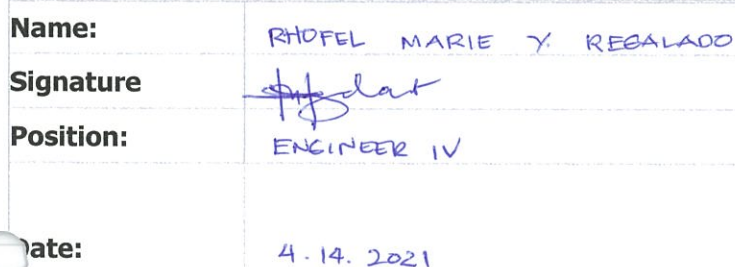 Name: RHOFEL MARIE Y. REGALADO
Signature
Position: ENGINEER IV
Date: 4.14.2021